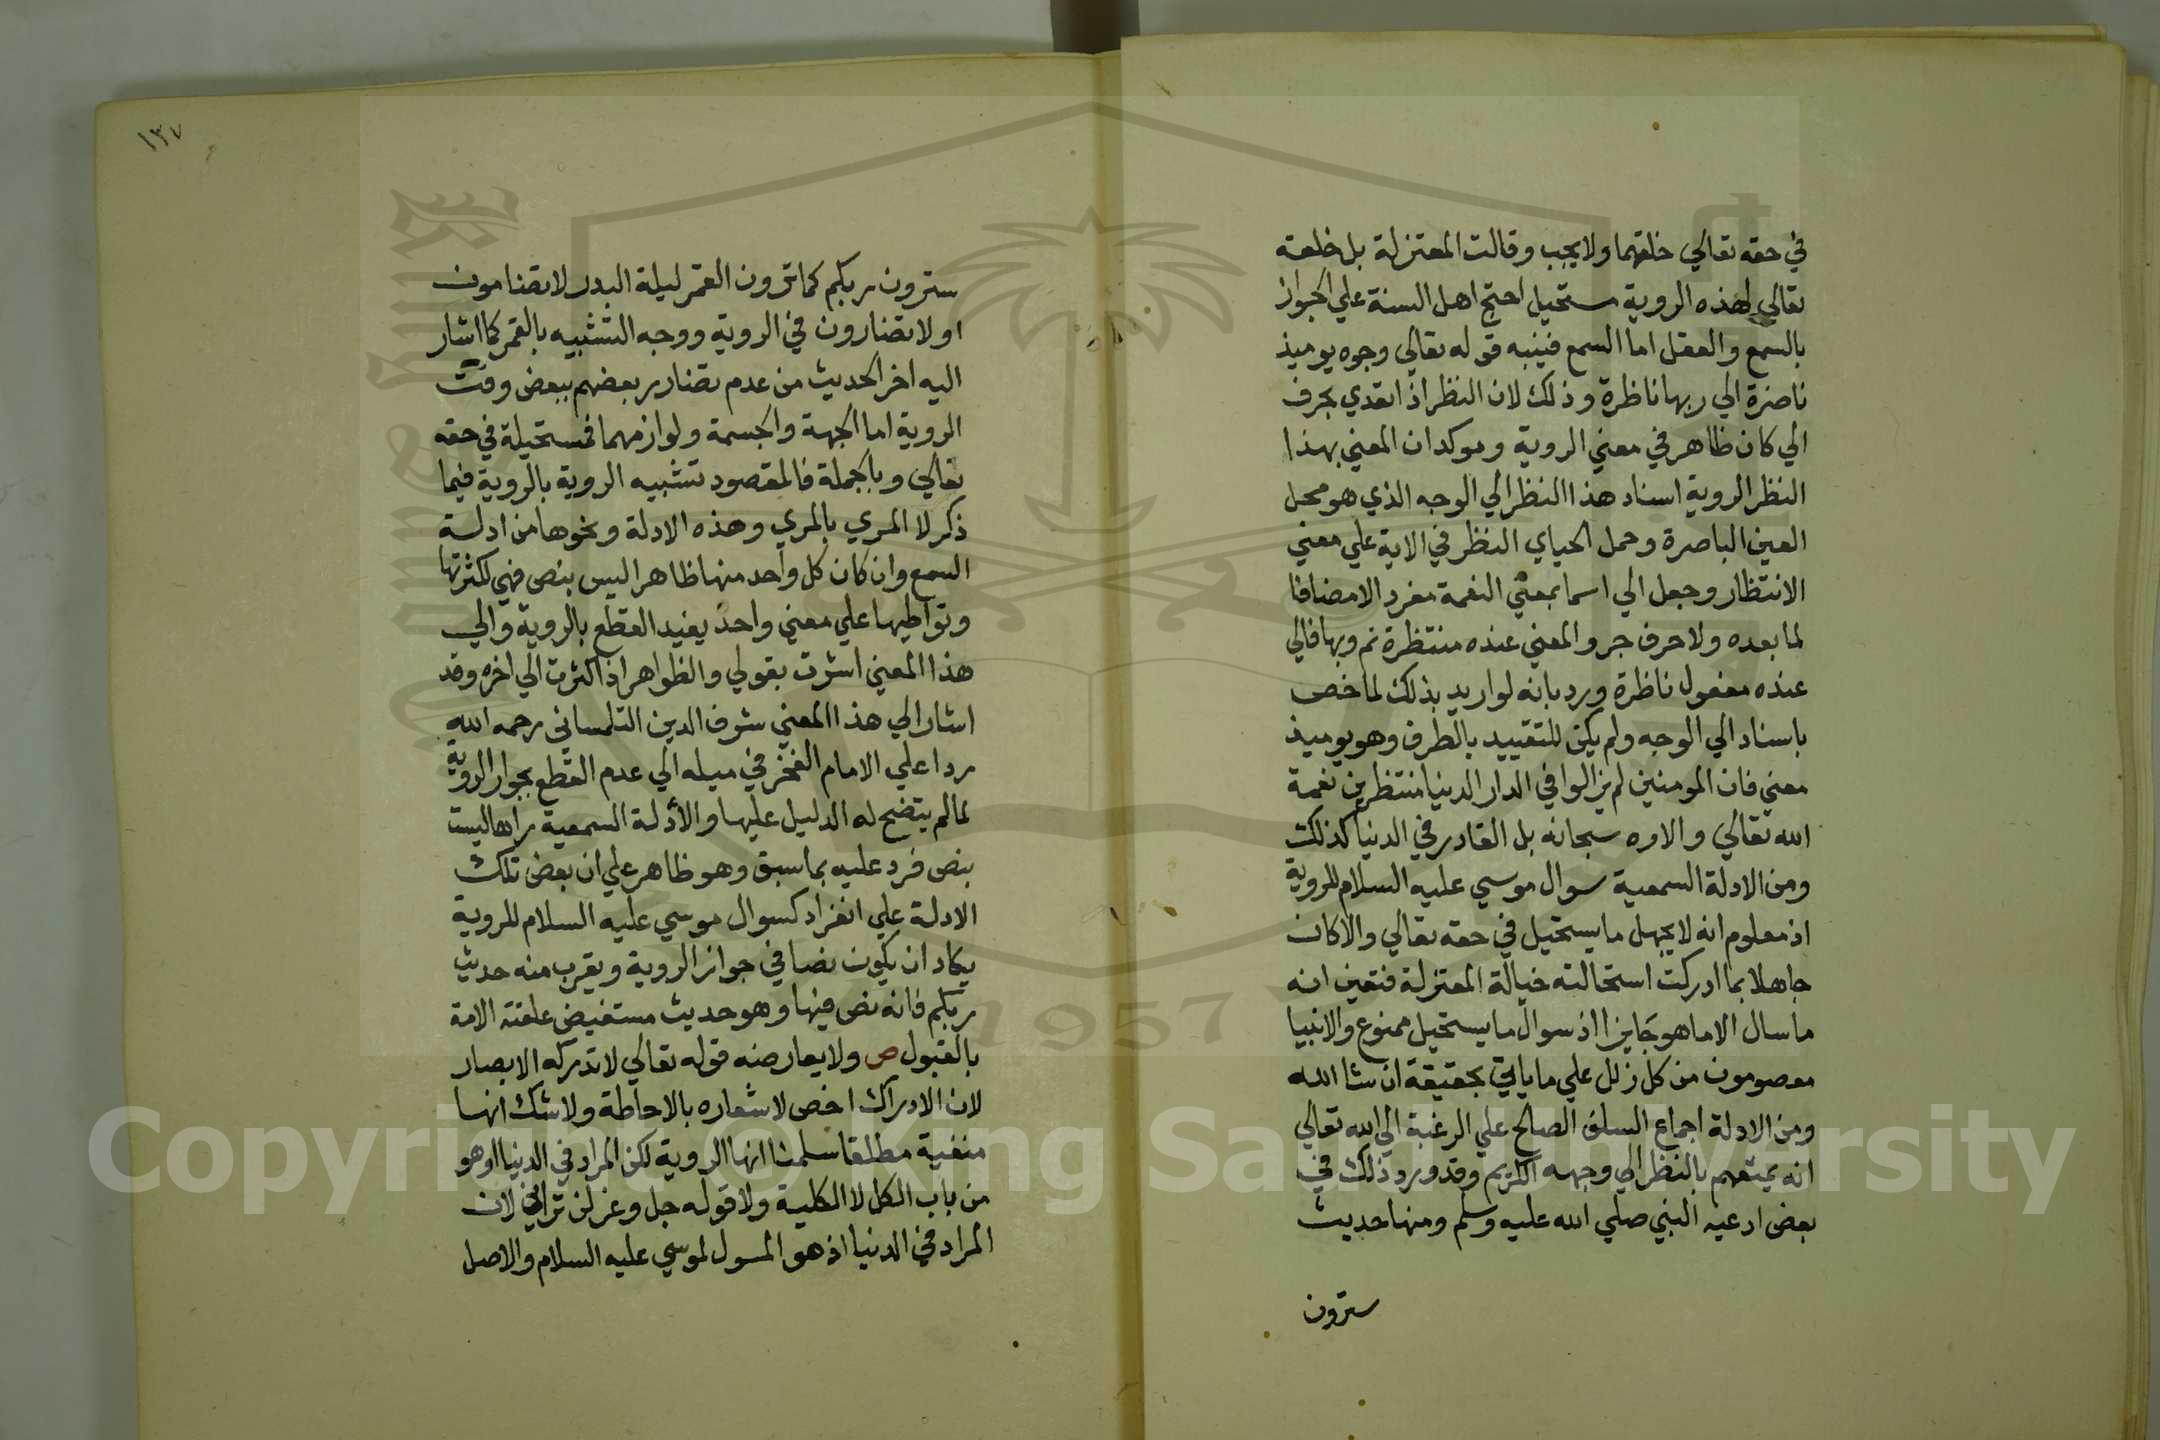 في حقه تعالي خلقهما ولا يجب وقالت المعتزلة بل خلقه
تعالي لهذه الروية مستحيل احتج اهل السنة علي الجواز
بالسمع والعقل اما السمع فينبه قوله تعالي وجوه يوميذ
ناضرة الي ربها ناظرة وذلك لان النظر اذا تعدي بحرف
الي كان ظاهر في معني الروية وموكد ان المعني بهذا
النظر الروية اسناد هذا النظر الي الوجه الذي هو محل
العين الباصرة وحمل الجباي النظر في الاية علي معني
الانتظار وجعل الي اسما بمعني النعمة مفرد الا مضافا
لما بعده ولا حرف جر والمعني عنده منتظرة نم وبها فالي
عنده مفعول ناظرة ورد بانه لو اريد بذلك لما خص
باسناد الي الوجه ولم يكن للتقييد بالظرف وهو يوميذ
معني فان المومنين لم يزالوا في الدار الدنيا منتظرين نعمة
الله تعالي والاوه سبحانه بل القادر في الدنيا كذلك
ومن الادلة السمعية سوال موسي عليه السلام للروية
اذ معلوم انه لا يجهل ما يستحيل في حقه تعالي والا كان
جاهلا بما ادركت استحالته حيالة المعتزلة فتعين انه
ما سال الا ما هو جايز اذ سوال ما يستحيل ممنوع والانبيا
معصومون من كل زلل علي ما ياتي بحقيقة ان شا الله
ومن الادلة اجماع السلف الصالح علي الرغبة الي الله تعالي
انه يمتعهم بالنظر الي وجهه الكريم وقد ورد ذلك في
بعض ادعيه النبي صلي الله عليه وسلم ومنها حديث
سترون
١٣٧
سترون ربكم كما ترون القمر ليلة البدر لا تضامون
او لا تضارون في الروية ووجه التشبيه بالقمر كما اشار
اليه اخر الحديث من عدم تضارر بعضهم ببعض وقت
الروية اما الجهة والجسمة ولوازمهما فمستحيلة في حقه
تعالي وبالجملة فالمقصود تشبيه الروية بالروية فيما
ذكر لا المري بالمري وهذه الادلة ونحوها من ادلة
السمع وان كان كل واحد منها ظاهرا ليس بنص فهي لكثرتها
وتواطيها علي معني واحد يفيد القطع بالروية والي
هذا المعني اشرت بقولي والظواهر اذا كثرت الي اخره وقد
اشار الي هذا المعني شرف الدين التلمساني رحمه الله
ردا علي الامام الفخر في ميله الي عدم القطع بجواز الروية
لما لم يتضح له الدليل عليها والأدلة السمعية راها ليست
بنص فرد عليه بما سبق وهو ظاهر علي ان بعض تلك
الادلة علي انفراد كسوال موسي عليه السلام للروية
يكاد ان يكون نصا في جواز الروية ويقرب منه حديث
ربكم فانه نص فيها وهو حديث مستفيض علقته الامة
بالقبول ص ولا يعارضه قوله تعالي لا تدركه الابصار
لان الادراك اخص لاشعاره بالاحاطة ولا شك انها
منفية مطلقا سلمنا انها الروية لكن المراد في الدنيا او هو
من باب الكل لا الكلية ولا قوله جل وعز لن تراني لان
المراد في الدنيا اذ هو المسول لموسي عليه السلام والاصل
1957
Copyright © King Saud University